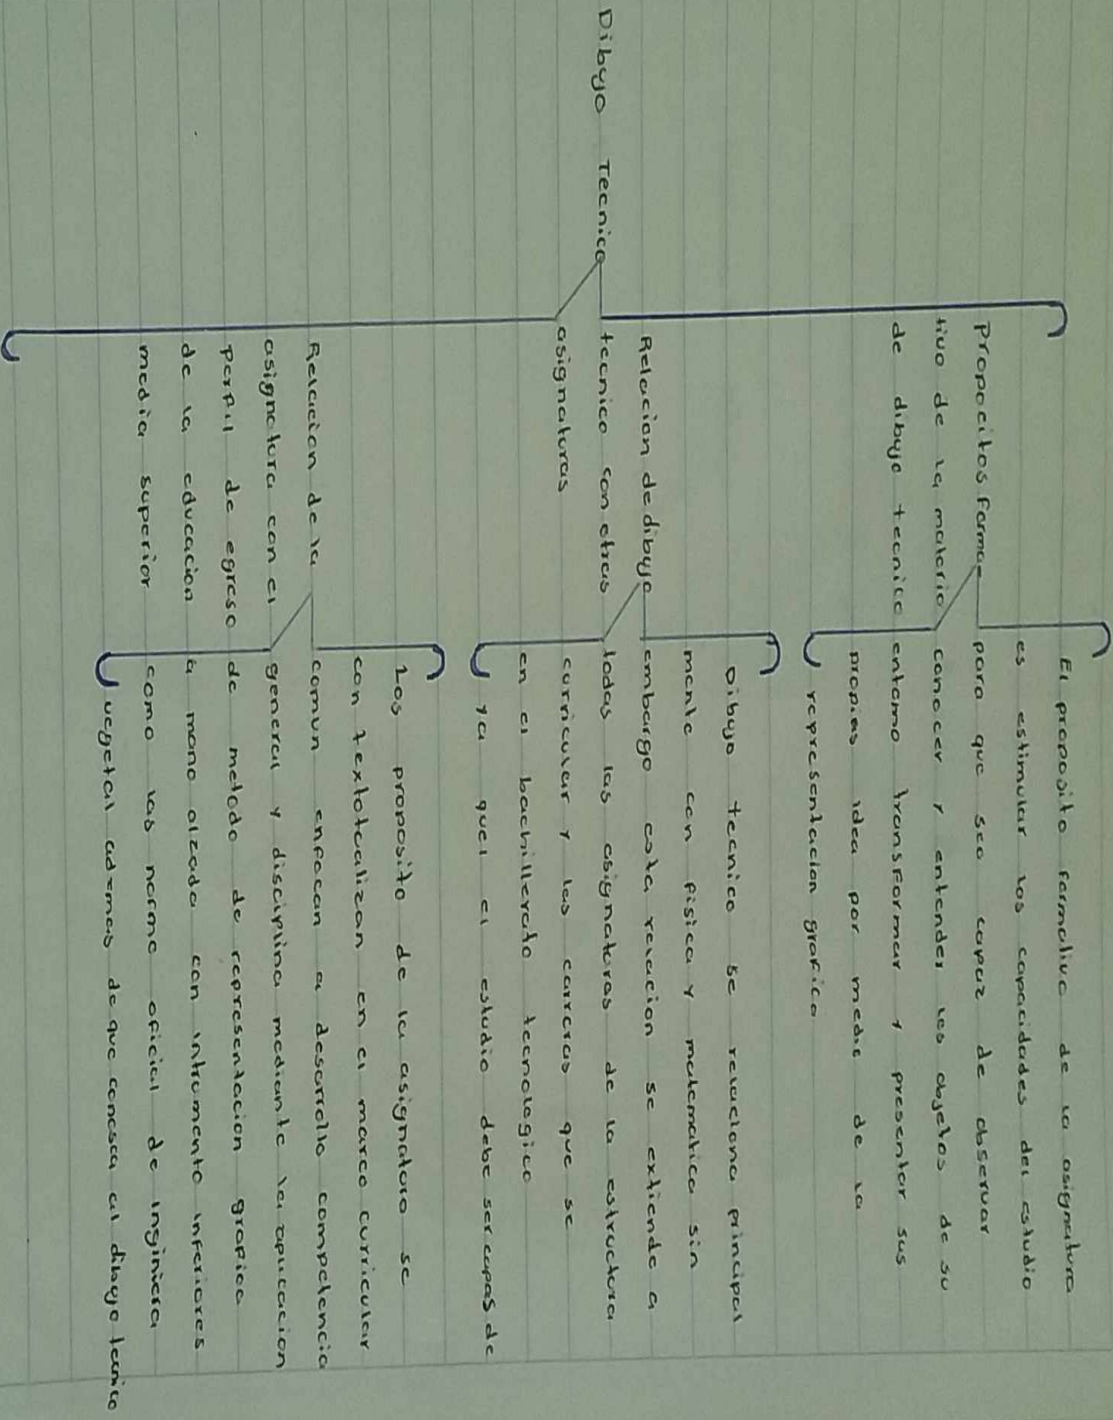 Dibujo Tecnico
Propocitos forma-
tivo de la materia
de dibujo tecnico
El proposito formativo de la asignatura
es estimular las capacidades del estudio
para que sea capaz de observar
conocer y entender los objetos de su
entorno transformar y presentar sus
propias idea por medio de la
representacion grafica
Relacion de dibujo
tecnico con otras
asignaturas
Dibujo tecnico se relaciona principal
mente con fisica y matematica sin
embargo esta relacion se extiende a
todas las asignaturas de la estructura
curricular y las carreras que se
en el bachillerato tecnologico
ya quel el estudio debe ser capas de
Relacion de la
asignatura con el
perfil de egreso
de la educacion
media superior
Los proposito de la asignatura se
con textotualizan en el marco curricular
comun enfocan a desarrollo competencia
general y disciplina mediante la aplicacion
de metodo de representacion grafica
a mano alzada con intrumento inferiores
como las norma oficial de inginiera
vegetal ademas de que conosca al dibujo tecnico